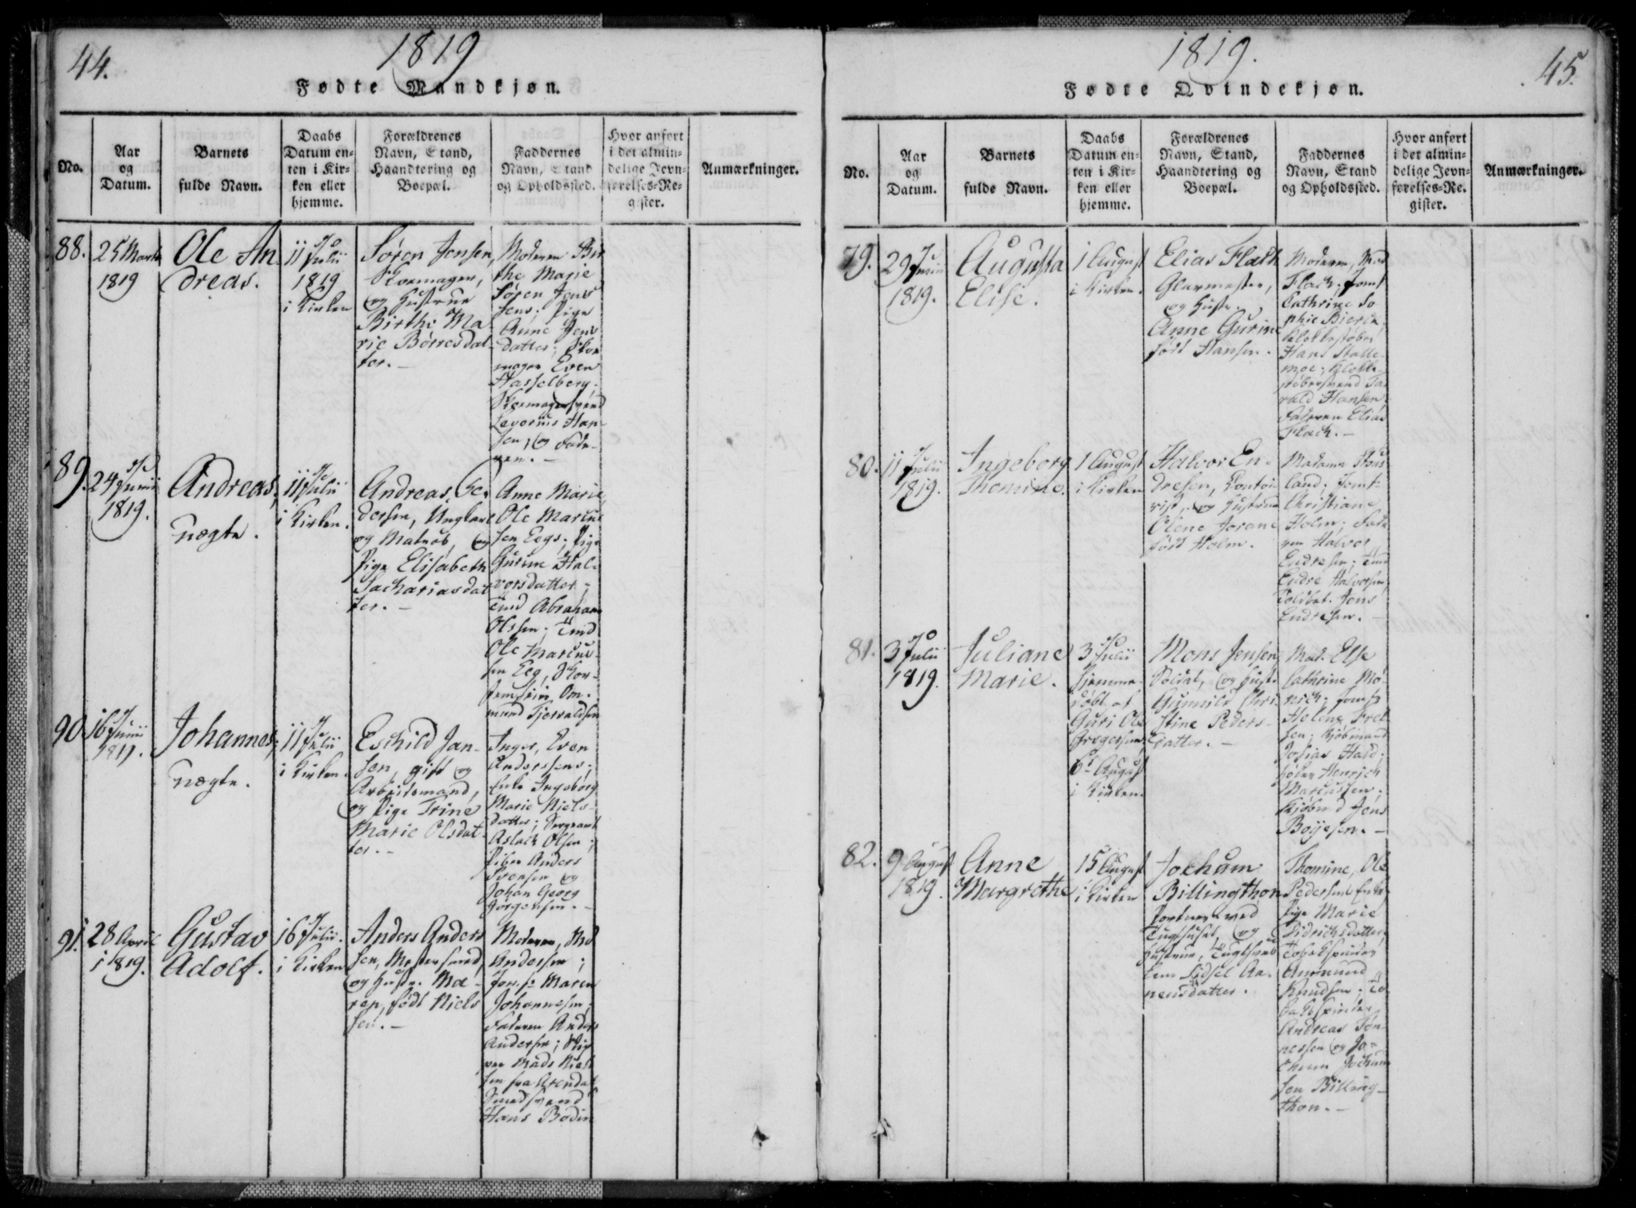 44.
1819
Fødte Mandkjøn.
No.
Aar
og
Datum.
Barnets
fulde Navn.
Daabs
Datum en-
ten i Kir-
ken eller
hjemme.
Forældrenes
Navn, Stand,
Haandtering og
Boepæl.
Faddernes
Navn, Stand
og Opholdssted.
Hvor anført
i det almin-
delige Jevn-
førelses-Re-
gister.
Anmærkninger.
88.
25 Marts
1819
Ole An
dreas.
11 Julii
1819
i Kirken
Søren Jensen
Skomager,
og Hustrue
Birthe Ma
rie Børresdat
ter.
Moderen Bir
the Marie
Søren Jens
Jens; Pige
Anne Jens
datter; Sko
mager Even
Hasselberg;
Skomagersvend
Han
sen, og Fade-
ren.
89.
24 Junii
1819.
Andreas,
uægte.
11 Julii
i Kirken.
Andreas
dersen, Ungkarl
og Matros, og
Pige Elisabeth
Sachariasdat
ter.
Anne Marie
Ole Marcus
sen Eegs; Pige
Gurine Hal-
vorsdatter;
Abraham
Olsen;
Ole Marcus-
sen Eeg,
Om-
mund Tjerraldsen
90.
16 Junii
1819.
Johannes,
uægte.
11 Julii
i Kirken.
Eschild Jan-
sen, gift og
Arbeidsmand,
og Pige Trine
Marie Olsdat
ter.
Inger, Even
Anderssens;
Enke Ingeborg
Marie Niels-
datter; Sergeant
Aslak Olsen;
Anders
Svensen og
Johan Georg
Jørgensen.
91.
28 April
1819.
Gustav
Adolf.
16 Julii.
i Kirken
Anders Anders
sen,
og Hustr. Ma-
ren, født Niels
sen.
Moderen, Md
Andersen;
Jomfr Maren
Johannesen;
Faderen Anders
Andersen;
Mads Niel
sen fra Arendal
Smedsvend
Hans Bodin
45.
1819.
Fødte Qvindekjøn.
No.
Aar
og
Datum.
Barnets
fulde Navn.
Daabs
Datum en-
ten i Kir-
ken eller
hjemme.
Forældrenes
Navn, Stand,
Haandtering og
Boepæl.
Faddernes
Navn, Stand
og Opholdssted.
Hvor anført
i det almin-
delige Jevn-
førelses-Re-
gister.
Anmærkninger.
79.
29 Junii
1819.
Augusta
Elise.
1 August
i Kirken.
Elias Flack
Glarmester,
og Hustr.
Anne Gurine
født Hansen.
Moderen, Mad
Flack; Jomf
Cathrine So
phie Bierke
Hans Stalle-
moe;
Ta
rald Hansen
Faderen Elias
Flack.
80.
11 Julii
1819.
Ingeborg
Thomine.
1 August
i Kirken
Halvor En-
dresen, Contoi
rist, og Hustrue
Olene Torene
født Holm.
Madame
land; Jomf.
Christiane
Holm; Fade
ren Halvor
Endresen;
Endre Halvorsen
Soldat Jens
Endresen.
81.
3 Julii
1819.
Juliane
Marie.
3 Julii
hjemme-
døbt af
Guri Ole
Gregersens
6 August
i Kirken.
Mons Jensen,
Soldat, og Hustr
Gunnild Chri
stine Peders-
datter.
Mad. Else
Cathrine Mö
nich; Jomfr
Helene
sen; Kjøbmand
Josias Hald;
Henrich
Marcussen;
Jens
Boyesen.
82.
9 August
1819.
Anne
Margrethe
15 August
i Kirken
Jochum
Billingthon
Portner ved
Tugthuset, og
Hustrue,
lem Sidsel An-
nensdatter.
Thomine, Ole
Pedersens Enke
Pige Marie
Didriksdatter
Tobakspinder
Ommund
Knudsen; To
bakspinder
Andreas Tøn
nessen og Jo-
chum Jochum
sen Billing-
thon.